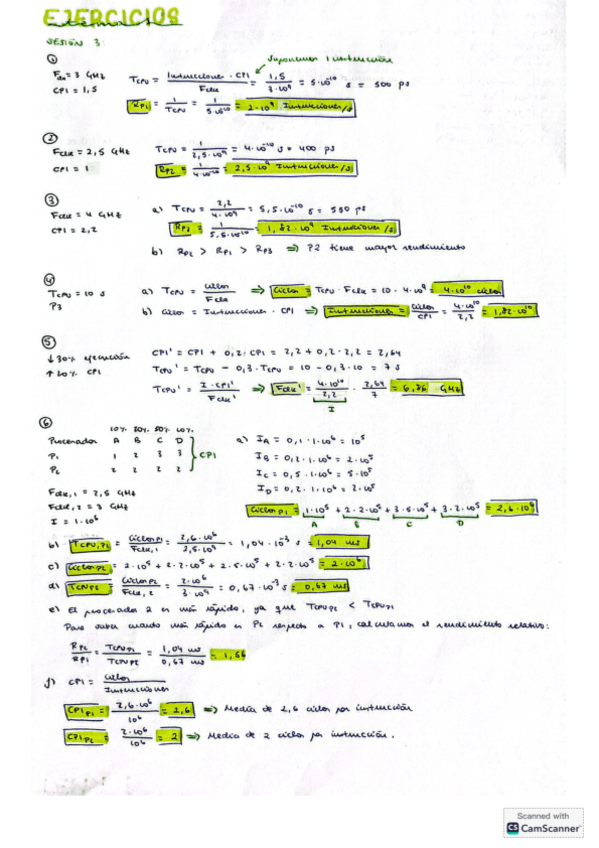 EJERCICIOS
SESIÓN 3:
① Suponemos 1 instrucción
Fclk = 3 GHz
CPI = 1,5
TCPU = Instrucciones · CPI / Fclk = 1,5 / 3·10⁹ = 5·10⁻¹⁰ s = 500 ps
RP1 = 1 / TCPU = 1 / 5·10⁻¹⁰ = 2·10⁹ Instrucciones/s
②
Fclk = 2,5 GHz
CPI = 1
TCPU = 1 / 2,5·10⁹ = 4·10⁻¹⁰ s = 400 ps
RP2 = 1 / 4·10⁻¹⁰ = 2,5·10⁹ Instrucciones/s
③
Fclk = 4 GHz
CPI = 2,2
a) TCPU = 2,2 / 4·10⁹ = 5,5·10⁻¹⁰ s = 550 ps
RP3 = 1 / 5,5·10⁻¹⁰ = 1,82·10⁹ Instrucciones/s
b) RP2 > RP1 > RP3 ⇒ P2 tiene mayor rendimiento
④
TCPU = 10 s
P3
a) TCPU = Ciclos / Fclk ⇒ Ciclos = TCPU · Fclk = 10 · 4·10⁹ = 4·10¹⁰ ciclos
b) Ciclos = Instrucciones · CPI ⇒ Instrucciones = Ciclos / CPI = 4·10¹⁰ / 2,2 = 1,82·10¹⁰
⑤
↓ 30% ejecución
↑ 20% CPI
CPI' = CPI + 0,2·CPI = 2,2 + 0,2·2,2 = 2,64
TCPU' = TCPU - 0,3·TCPU = 10 - 0,3·10 = 7 s
TCPU' = I·CPI' / Fclk' ⇒ Fclk' = 4·10¹⁰ / 2,2 · 2,64 / 7 = 6,86 GHz
I
⑥
10% 20% 50% 20%
Procesador A B C D
P1 1 2 3 3
P2 2 2 2 2
CPI
Fclk,1 = 2,5 GHz
Fclk,2 = 3 GHz
I = 1·10⁶
a) IA = 0,1·1·10⁶ = 10⁵
IB = 0,2·1·10⁶ = 2·10⁵
IC = 0,5·1·10⁶ = 5·10⁵
ID = 0,2·1·10⁶ = 2·10⁵
Ciclos P1 = 1·10⁵ + 2·2·10⁵ + 3·5·10⁵ + 3·2·10⁵ = 2,6·10⁶
A B C D
b) TCPU,P1 = Ciclos P1 / Fclk,1 = 2,6·10⁶ / 2,5·10⁹ = 1,04·10⁻³ s = 1,04 ms
c) Ciclos P2 = 2·10⁵ + 2·2·10⁵ + 2·5·10⁵ + 2·2·10⁵ = 2·10⁶
d) TCPU P2 = Ciclos P2 / Fclk,2 = 2·10⁶ / 3·10⁹ = 0,67·10⁻³ s = 0,67 ms
e) El procesador 2 es más rápido, ya que TCPU P2 < TCPU P1
Para saber cuando más rápido es P2 respecto a P1, calculamos el rendimiento relativo:
RP2 / RP1 = TCPU P1 / TCPU P2 = 1,04 ms / 0,67 ms = 1,56
f) CPI = Ciclos / Instrucciones
CPI P1 = 2,6·10⁶ / 10⁶ = 2,6 ⇒ Media de 2,6 ciclos por instrucción
CPI P2 = 2·10⁶ / 10⁶ = 2 ⇒ Media de 2 ciclos por instrucción.
Scanned with
CS CamScanner